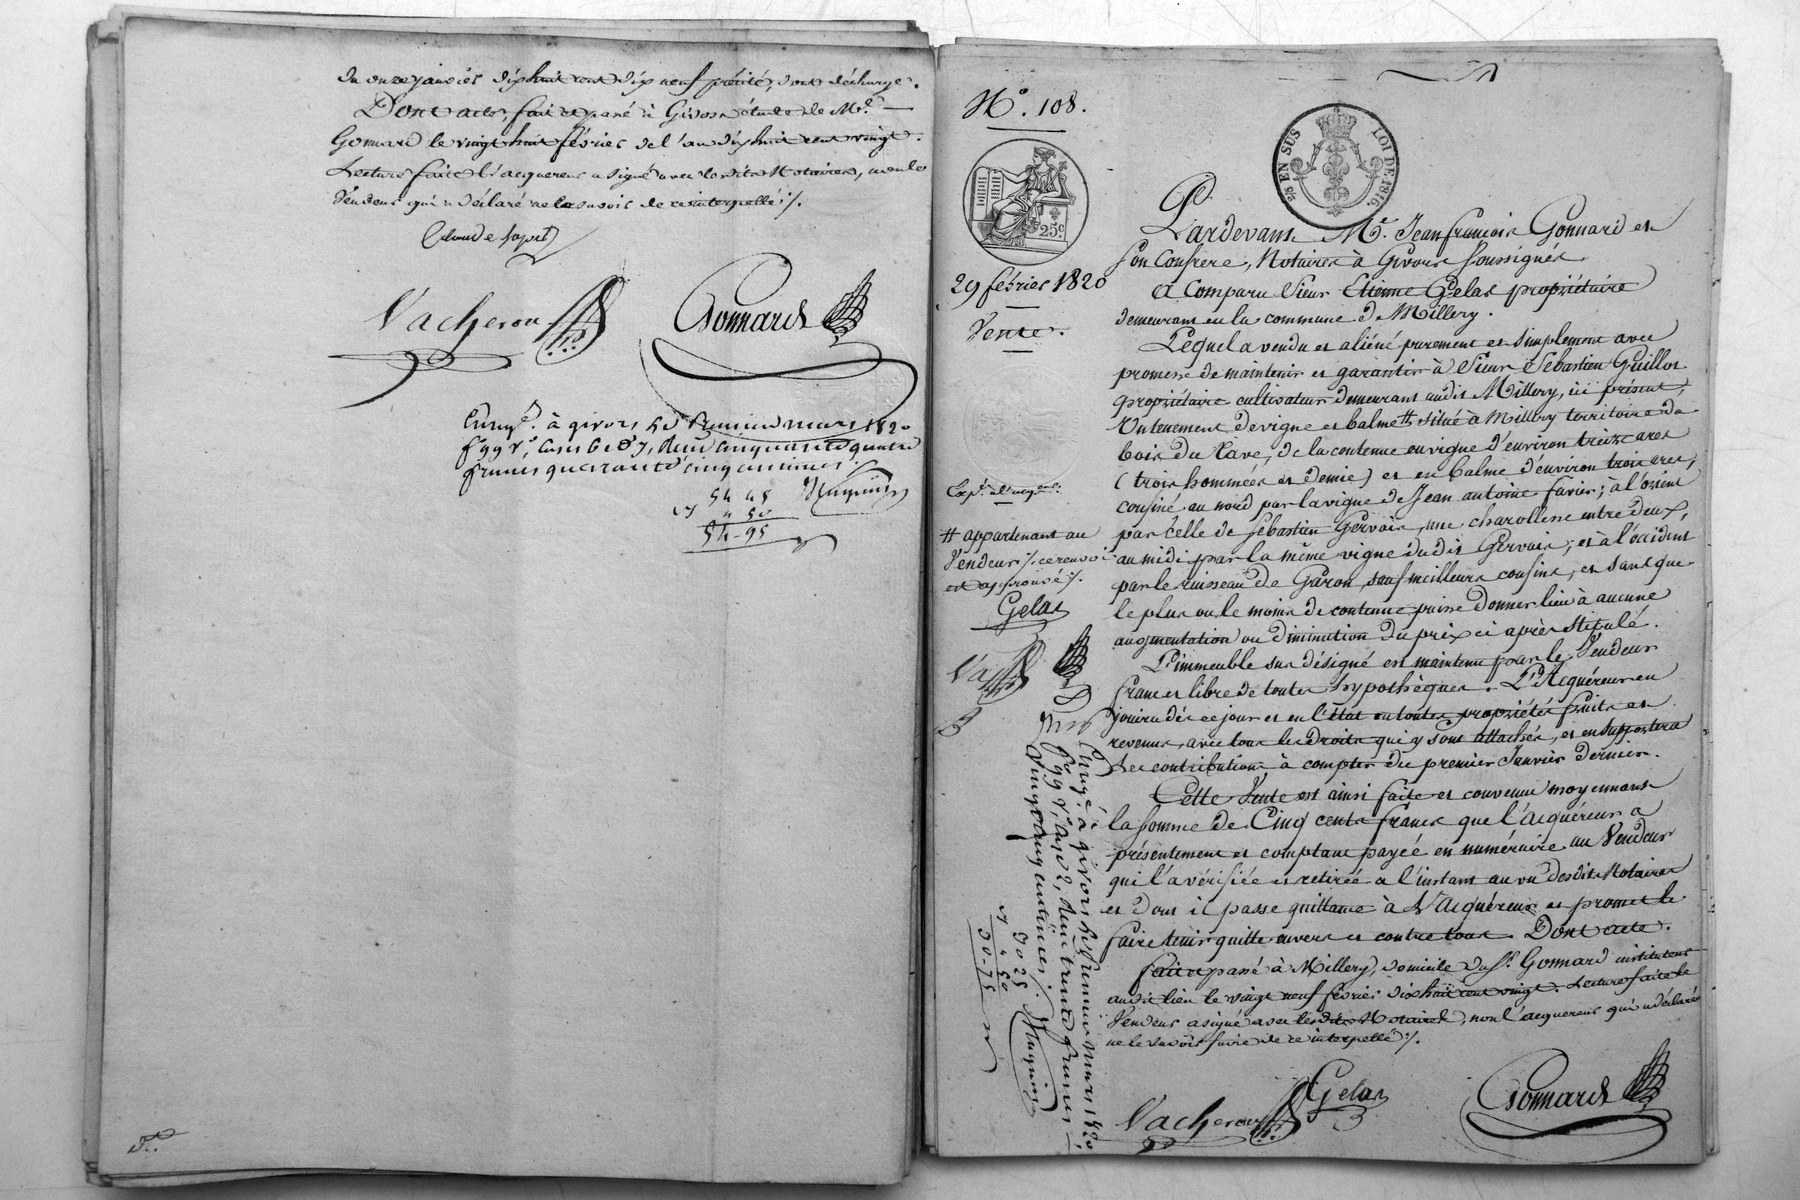 du onze janvier dix huit cent dix neuf précité, dont décharge.
Dont acte, fait et passé à Givors étude de Me.
Gonnard le vingt huit février de l'an dix huit cent vingt.
Lecture faite l'acquereur a signé avec lesdits Notaires, non le
Vendeur qui a déclaré ne le savoir de ce interpellé ./.
Vacheron Gonnard
Enreg.é à givors le premier mars 1820
f.° 99 v.°, cases 6 et 7, reçu cinquante quatre
francs quarante cinq centimes.
54 45
5 50
54-95
N.° 108.
2/5 EN SUS LOI DE 1816.
25c
29 février 1820
Vente.
Pardevant Me. Jean françois Gonnard et
son Confrere, Notaires à Givors soussignés
A Comparu Sieur Etienne Gelas propriétaire
demeurant en la commune de Millery.
Lequel a vendu et aliéné purement et simplement avec
promesse de maintenir et garantir à Sieur Sébastien Guillot
propriétaire cultivateur demeurant audit Millery, ici présent,
Un tenement de vigne et balme # situé à Millery territoire du
bois du Rave, de la contenue en vigne d'environ treize ares
(trois hommées et demie) et en balme d'environ trois ares,
confiné au nord par la vigne de Jean antoine favier; à l'orient
par celle de Sébastien Gervais, une charollesse entre deux,
au midi par la même vigne dudit Gervais; et à l'occident
par le ruisseau de Garon, sauf meilleurs confins, et sans que
le plus ou le moins de contenue puisse donner lieu à aucune
augmentation ou diminution du prix ci après stipulé.
L'immeuble sus désigné est maintenu par le Vendeur
franc et libre de toutes hypothèques. L'Acquéreur en
jouira dès ce jour et en l'état en toutes propriétés fruits et
revenus, avec tous les droits qui y sont attachés, et en supportera
les contributions à compter du premier Janvier dernier.
Cette Vente est ainsi faite et convenue moyennant
la somme de Cinq cents francs que l'acquéreur a
présentement et comptant payée en numéraire au Vendeur
qui l'a vérifiée et retirée a l'instant au vu desdits Notaires
et dont il passe quittance à l'Acquéreur et promet le
faire tenir quitte envers et contre tous. Dont acte.
fait et passé à Millery, domicile du S.r Gonnard instituteur
audit lieu le vingt neuf février dix huit cent vingt. Lecture faite le
Vendeur a signé avec lesdits Notaires, non l'acquereur qui a déclaré
ne le savoir faire de ce interpellé ./.
Vacheron Gelas Gonnard
# appartenant au
Vendeur ./. ce renvoi
est approuvé ./.
Gelas
Enreg.é à givors le premier mars 1820
f.° 99 v.°, case 2, reçu trente francs
vingt cinq centimes
30 25
50
30-75